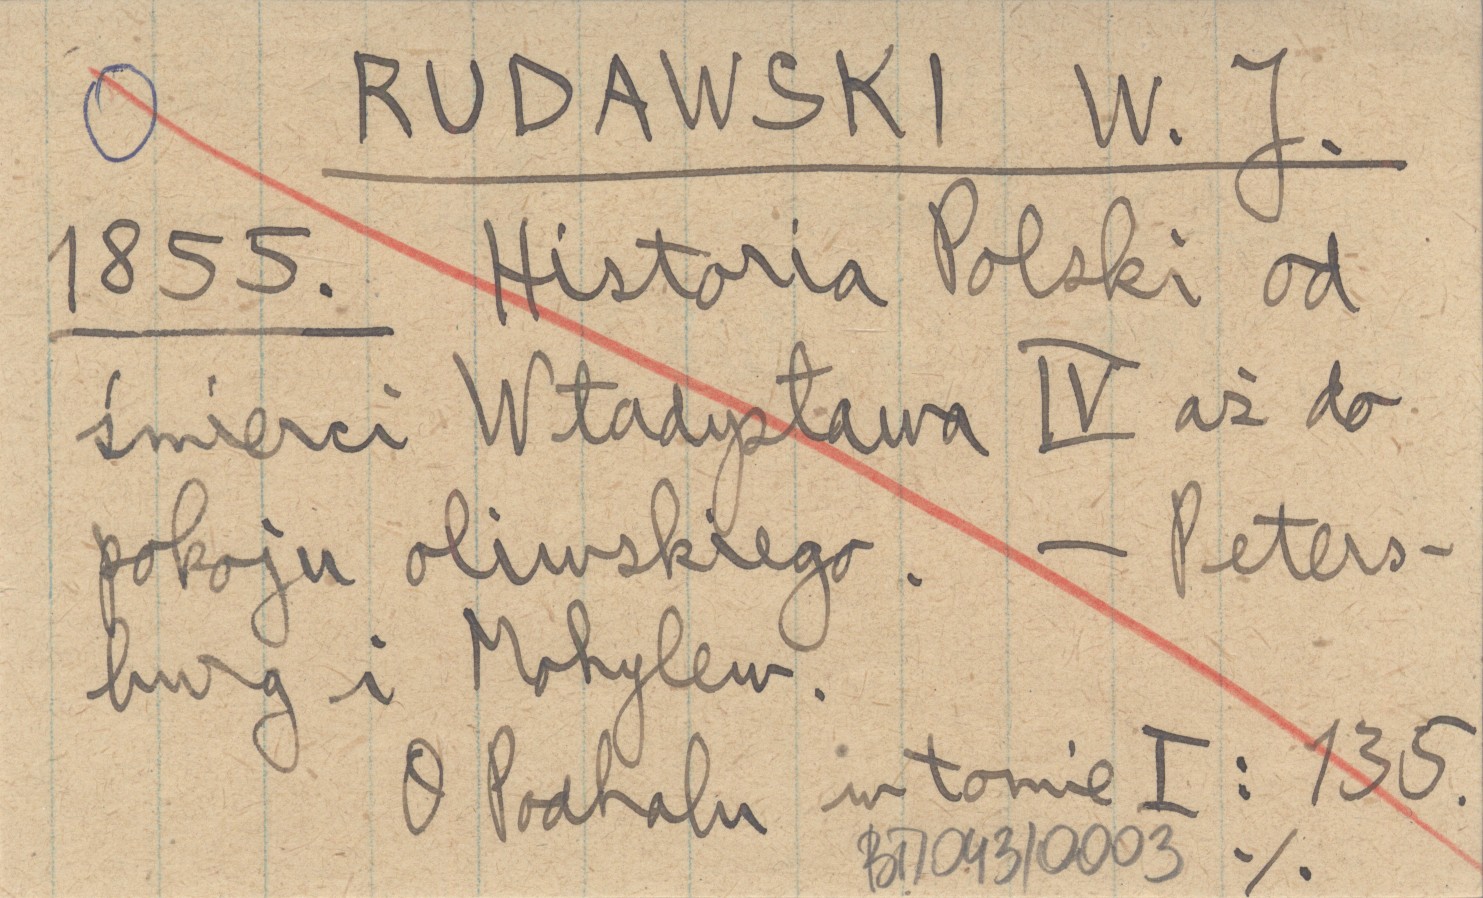 RUDAWSKI W. J.
1855. Historia Polski od
śmierci Władysława IV aż do
pokoju oliwskiego. — Peters-
burg i Mohylew.
O Podhalu w tomie I : 135.
BT/043/0003 ·/.